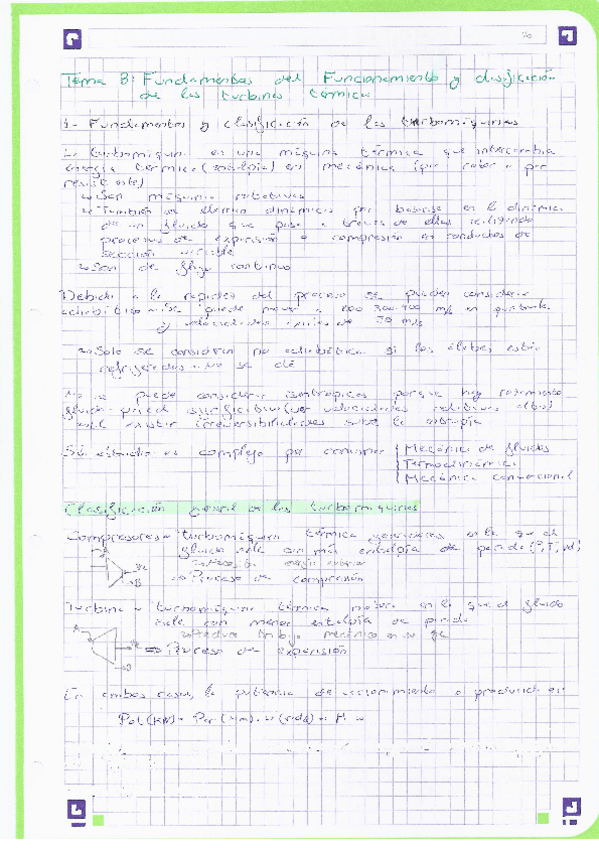 Tema 3: Fundamentos del Funcionamiento y clasificación
de las turbinas térmicas
1- Fundamentos y clasificación de las turbomáquinas
La turbomáquina es una máquina térmica que intercambia
energía térmica (entalpía) en mecánica (par rotor o par
resistente)
Son máquinas rotativas
También se llaman dinámicas por basarse en la dinámica
de un fluido que pasa a través de ellas realizando
procesos de expansión o compresión en conductos de
sección variable
Son de flujo continuo
Debido a la rapidez del proceso se puede considerar
adiabático se puede mover a m/s en
y velocidades de 50 m/s
Solo se considera no adiabática si los álabes están
refrigerados no se dé
No se puede considerar isentrópica porque hay rozamiento
fluido-pared significativo (ver velocidades relativas altas)
existir irreversibilidades sube la entropía
Su estudio es complejo por Mecánica de fluidos
Termodinámica
Mecánica convencional
Clasificación general de las turbomáquinas
Compresores = turbomáquina térmica generadora en la que el
fluido sale con más entalpía de parada
Proceso de compresión
Turbina = turbomáquina térmica motora en la que el fluido
sale con menor entalpía de parada
trabajo mecánico en su eje
Proceso de expansión
En ambos casos, la potencia de accionamiento o producida es: